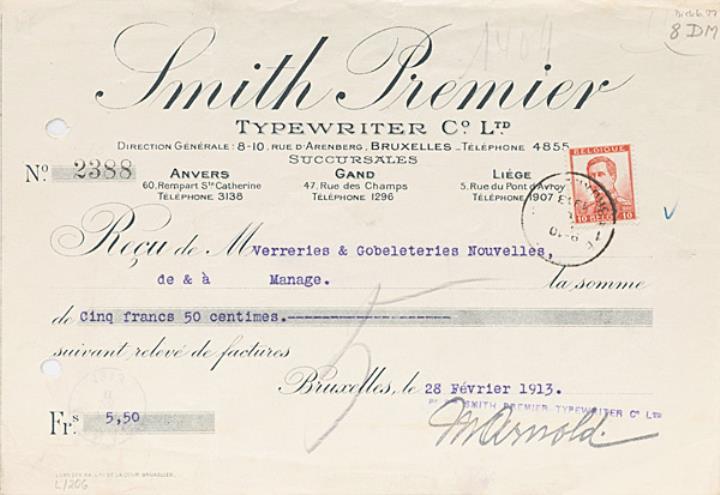 8 DM
1404
Smith Premier
TYPEWRITER Cº LTD
DIRECTION GÉNÉRALE: 8-10, RUE D'ARENBERG, BRUXELLES - TÉLÉPHONE 4855
SUCCURSALES
Nº 2388
ANVERS GAND LIÉGE
60, Rempart Ste Catherine 47, Rue des Champs 5, Rue du Pont d'Avroy
TÉLÉPHONE 3138 TÉLÉPHONE 1296 TÉLÉPHONE 1907
BELGIQUE
10 10
Reçu de M Verreries & Gobeleteries Nouvelles,
de & à Manage. la somme
de Cinq francs 50 centimes.--------------------
suivant relevé de factures
5
Bruxelles, le 28 Février 1913.
SMITH PREMIER TYPEWRITER Cº LTD
Frs 5,50
MArnold.
L/206